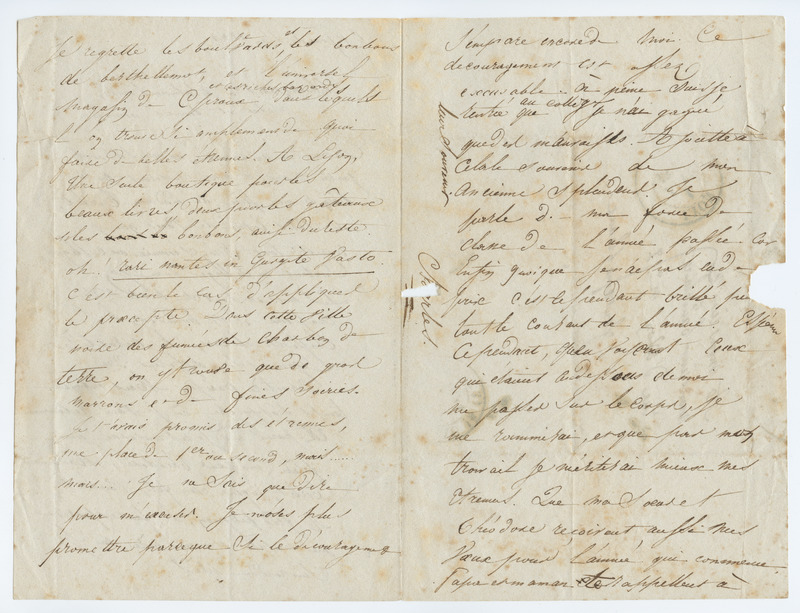 Je regrette les boulvards, et les bonbons
de berthellemot, et l'universel
magasin de Giroux, dans lequel
l'on trouve si amplement de quoi
faire de belles étrennes. A Lyon,
une seule boutique pour les
beaux livres, deux pour les gâteaux
et les bonbons, ainsi du reste.
oh! rari nantes in Gurgite Vasto.
c'est bien le cas d'appliquer
le précepte. Dans cette ville
noire des fumées de charbon de
terre, on y trouve que de gros
marrons et de fines soieries.
Je t'avais promis des étrennes,
une place de 1er ou second, mais......
mais.... Je ne sais que dire
pour m'excuser. Je n'ose plus
promettre parceque si le découragement
s'empare encore de moi. Ce
découragement est assez
excusable. à peine suis je
rentré au collège que je n'ai gagné
que des mauvaises. Ajoutte à
cela le souvenir de mon
ancienne splendeur. Je
parle de ma force de
classe de l'année passée car
Enfin quoique
c'est cependant brillé pr
tout le courant de l'année. Espérons
cependant, que voyant ceux
qui étaient au dessous de moi
me passer sur le corps, je
me ranimerai, et que par mon
travail je mériterai mieux mes
étrennes. Que ma soeur et
Théodore reçoivent aussi mes
voeux pour l'année qui commence.
Papa et maman te rappellent à
leur souvenir
Charles.